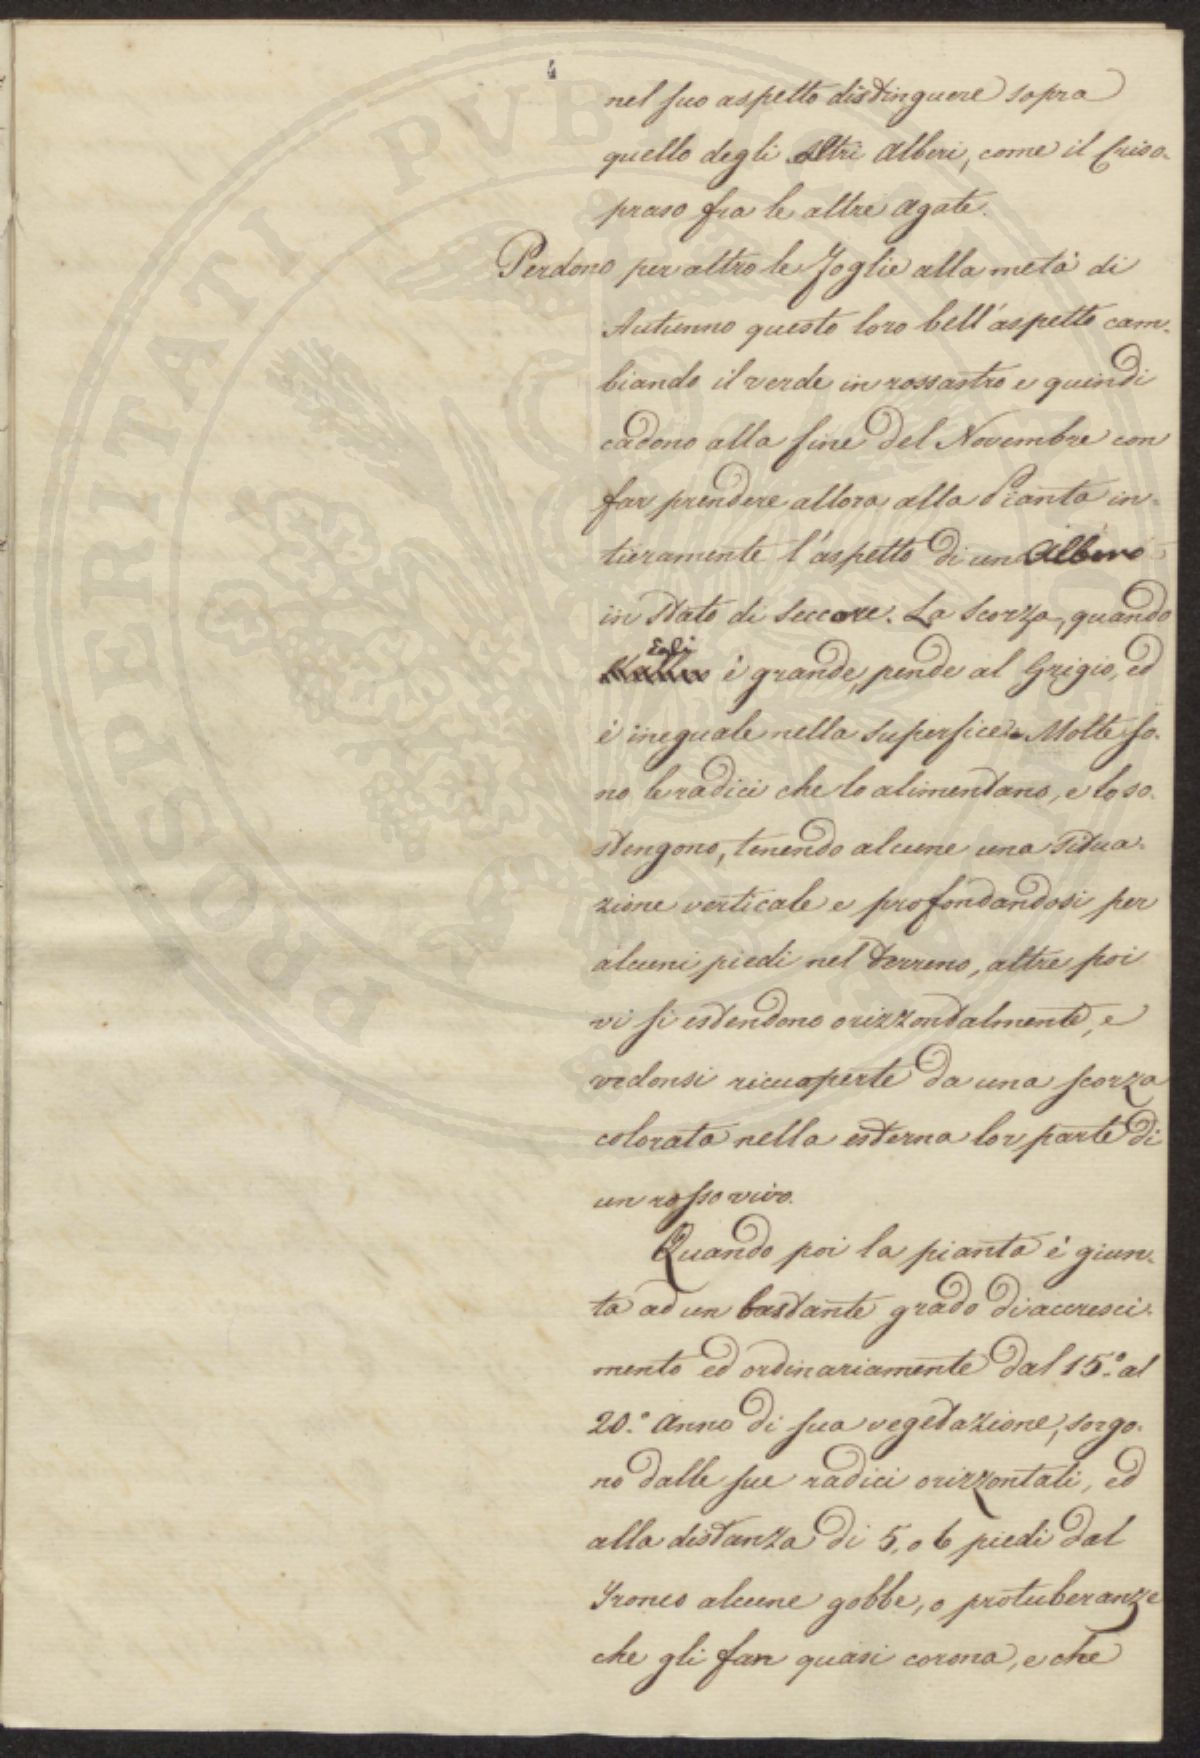 4
nel suo aspetto distinguere sopra
quello degli altri Alberi, come il Criso-
praso fra le altre Agate.
Perdono per altro le Foglie alla metà di
Autunno questo loro bell'aspetto cam-
biando il verde in rossastro e quindi
cadono alla fine del Novembre con
far prendere allora alla Pianta in-
tieramente l'aspetto di un Albero
in stato di seccore. La Scorza, quando
Egli
è grande, pende al Grigio, ed
è ineguale nella superfice. Molte so-
no le radici che lo alimentano, e lo so-
stengono, tenendo alcune una situa-
zione verticale e profondandosi per
alcuni piedi nel terreno, altre poi
vi si estendono orizzontalmente, e
vedonsi ricuoperte da una scorza
colorata nella esterna lor parte di
un rosso vivo.
Quando poi la pianta è giun-
ta ad un bastante grado di accresci-
mento ed ordinariamente dal 15.° al
20.° Anno di sua vegetazione, sorgo-
no dalle sue radici orizzontali, ed
alla distanza di 5. o 6 piedi dal
Tronco alcune gobbe, o protuberanze
che gli fan quasi corona, e che
PROSPERITATI PUBLICAE